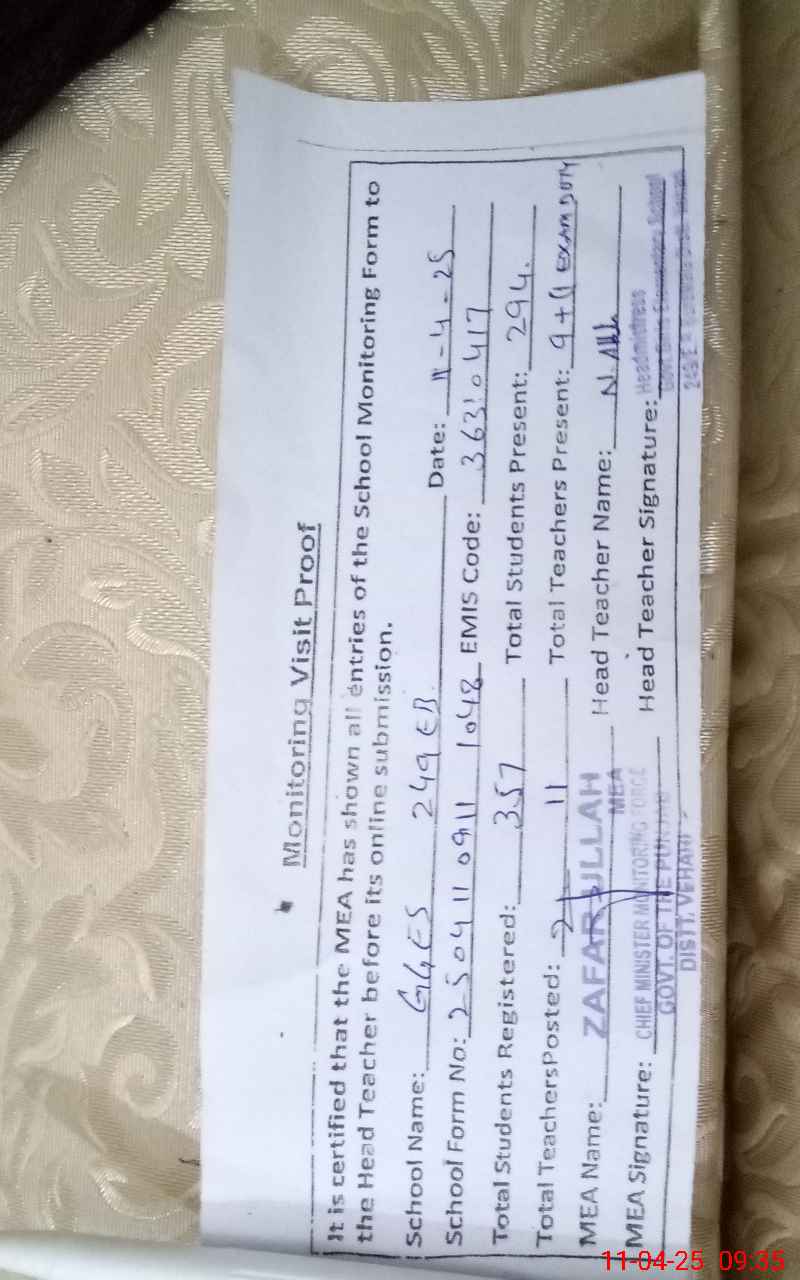 Monitoring Visit Proof
It is certified that the MEA has shown all entries of the School Monitoring Form to
the Head Teacher before its online submission.
School Name: GGES 249 EB Date: 11-4-25
School Form No: 2504110911 1048 EMIS Code: 36310417
Total Students Registered: 357 Total Students Present: 294.
Total TeachersPosted: 11 Total Teachers Present: 9+(1 EXAM DUTY
MEA Name: ZAFAR ULLAH Head Teacher Name:
MEA
MEA Signature: CHIEF MINISTER MONITORING FORCE Head Teacher Signature: Headmistress
GOVT. OF THE PUNJAB Govt. Girls Elementary School
DISTT. VEHARI
11-04-25 09:35